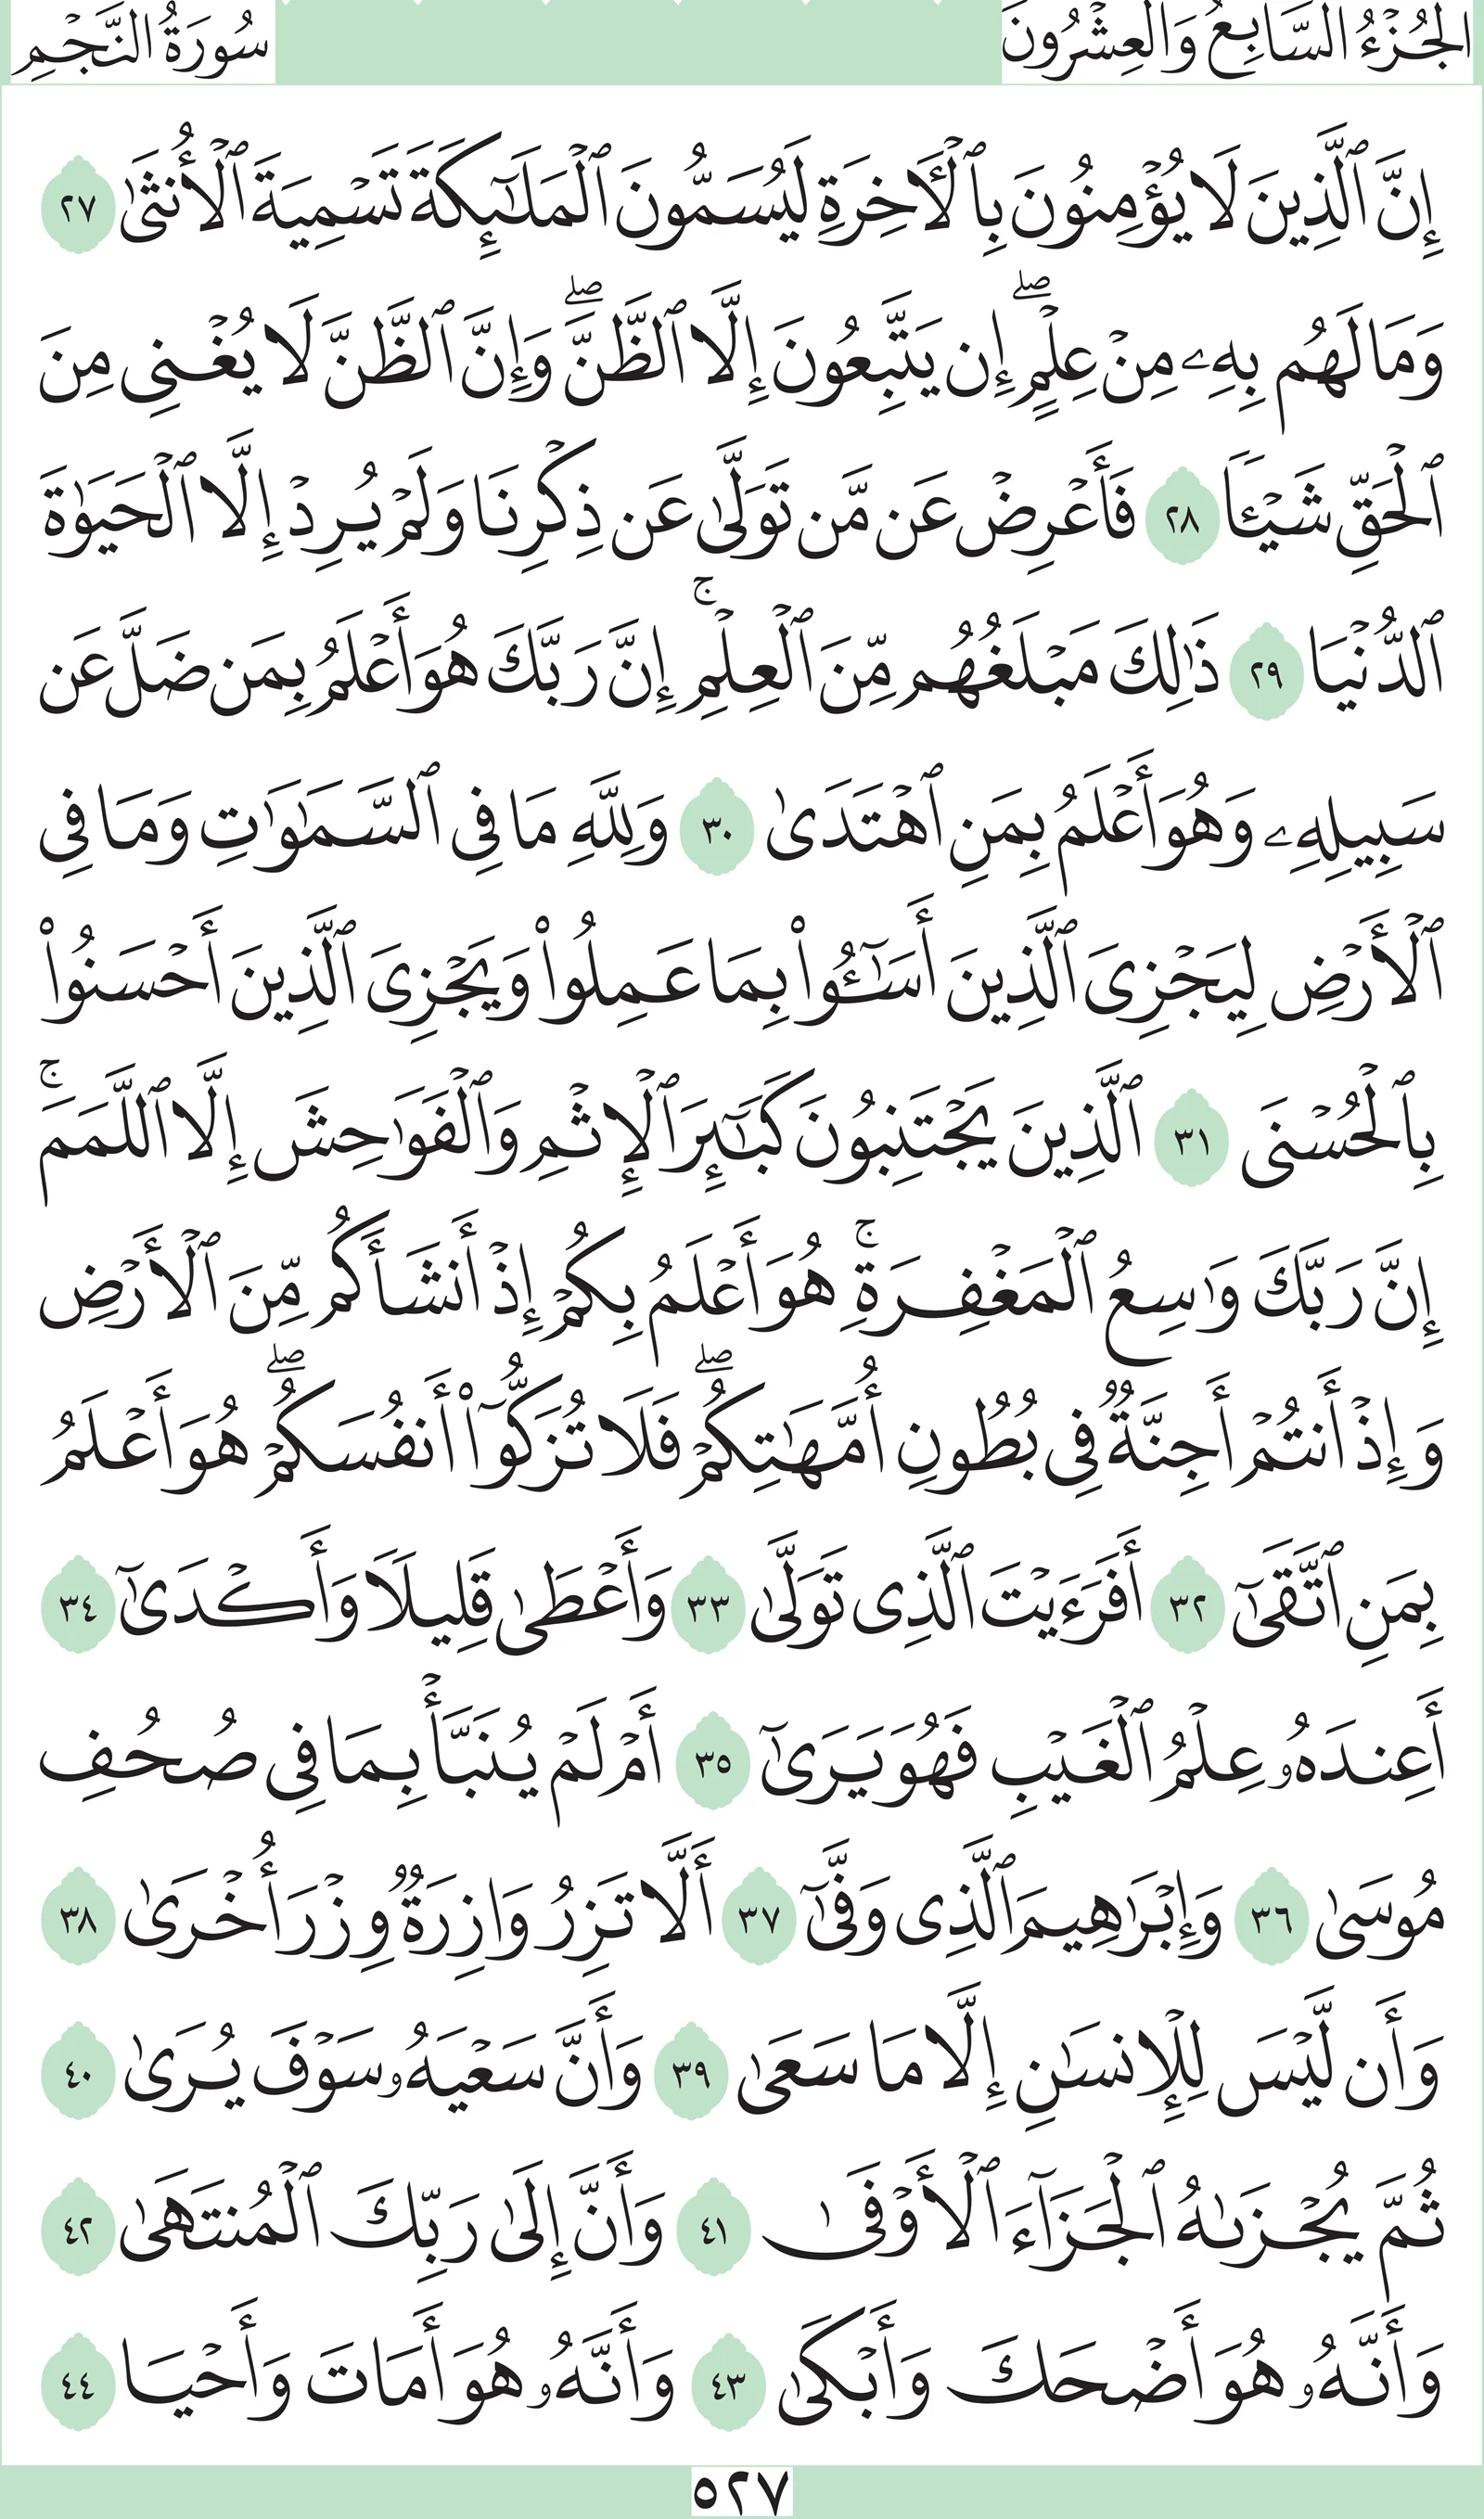 الجُزْءُ السَّابِعُ وَالعِشْرُونَ
سُورَةُ النَّجْمِ
إِنَّ ٱلَّذِينَ لَا يُؤْمِنُونَ بِٱلْأَخِرَةِ لَيُسَمُّونَ ٱلْمَلَٰٓئِكَةَ تَسْمِيَةَ ٱلْأُنثَىٰ ٢٧
وَمَا لَهُم بِهِۦ مِنْ عِلْمٍ ۖ إِن يَتَّبِعُونَ إِلَّا ٱلظَّنَّ ۖ وَإِنَّ ٱلظَّنَّ لَا يُغْنِى مِنَ
ٱلْحَقِّ شَيْـًٔا ٢٨ فَأَعْرِضْ عَن مَّن تَوَلَّىٰ عَن ذِكْرِنَا وَلَمْ يُرِدْ إِلَّا ٱلْحَيَوٰةَ
ٱلدُّنْيَا ٢٩ ذَٰلِكَ مَبْلَغُهُم مِّنَ ٱلْعِلْمِ ۚ إِنَّ رَبَّكَ هُوَ أَعْلَمُ بِمَن ضَلَّ عَن
سَبِيلِهِۦ وَهُوَ أَعْلَمُ بِمَنِ ٱهْتَدَىٰ ٣٠ وَلِلَّهِ مَا فِى ٱلسَّمَٰوَٰتِ وَمَا فِى
ٱلْأَرْضِ لِيَجْزِىَ ٱلَّذِينَ أَسَٰٓـُٔوا۟ بِمَا عَمِلُوا۟ وَيَجْزِىَ ٱلَّذِينَ أَحْسَنُوا۟
بِٱلْحُسْنَى ٣١ ٱلَّذِينَ يَجْتَنِبُونَ كَبَٰٓئِرَ ٱلْإِثْمِ وَٱلْفَوَٰحِشَ إِلَّا ٱللَّمَمَ ۚ
إِنَّ رَبَّكَ وَٰسِعُ ٱلْمَغْفِرَةِ ۚ هُوَ أَعْلَمُ بِكُمْ إِذْ أَنشَأَكُم مِّنَ ٱلْأَرْضِ
وَإِذْ أَنتُمْ أَجِنَّةٌ فِى بُطُونِ أُمَّهَٰتِكُمْ ۖ فَلَا تُزَكُّوٓا۟ أَنفُسَكُمْ ۖ هُوَ أَعْلَمُ
بِمَنِ ٱتَّقَىٰٓ ٣٢ أَفَرَءَيْتَ ٱلَّذِى تَوَلَّىٰ ٣٣ وَأَعْطَىٰ قَلِيلًا وَأَكْدَىٰٓ ٣٤
أَعِندَهُۥ عِلْمُ ٱلْغَيْبِ فَهُوَ يَرَىٰٓ ٣٥ أَمْ لَمْ يُنَبَّأْ بِمَا فِى صُحُفِ
مُوسَىٰ ٣٦ وَإِبْرَٰهِيمَ ٱلَّذِى وَفَّىٰٓ ٣٧ أَلَّا تَزِرُ وَازِرَةٌ وِزْرَ أُخْرَىٰ ٣٨
وَأَن لَّيْسَ لِلْإِنسَٰنِ إِلَّا مَا سَعَىٰ ٣٩ وَأَنَّ سَعْيَهُۥ سَوْفَ يُرَىٰ ٤٠
ثُمَّ يُجْزَىٰهُ ٱلْجَزَآءَ ٱلْأَوْفَىٰ ٤١ وَأَنَّ إِلَىٰ رَبِّكَ ٱلْمُنتَهَىٰ ٤٢
وَأَنَّهُۥ هُوَ أَضْحَكَ وَأَبْكَىٰ ٤٣ وَأَنَّهُۥ هُوَ أَمَاتَ وَأَحْيَا ٤٤
٥٢٧